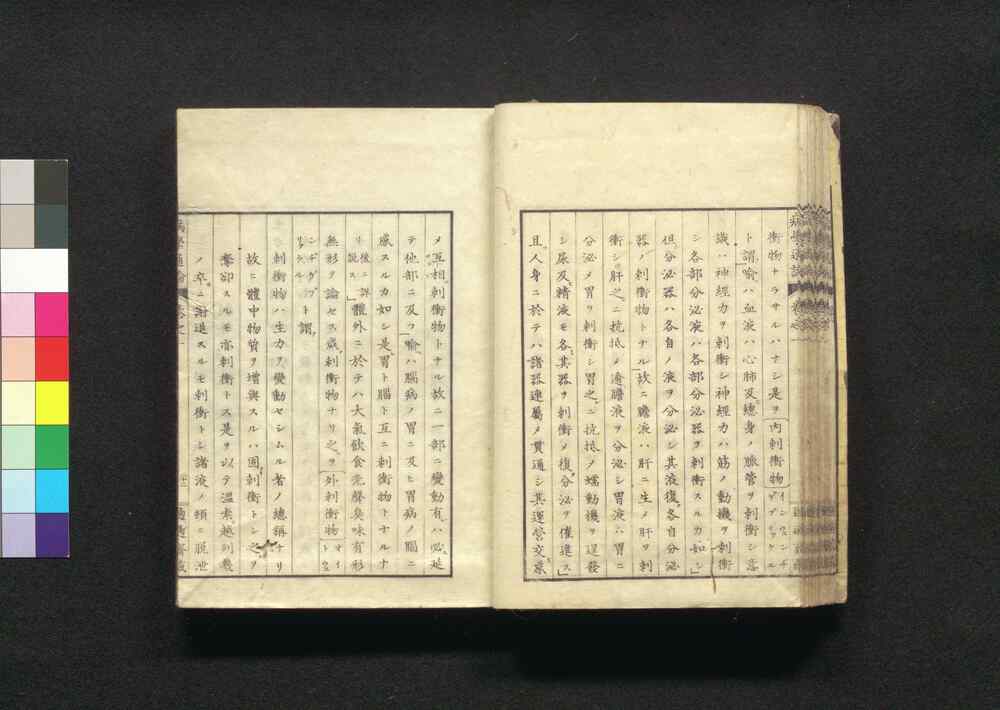 衝物トラサルハナシ是ヲ内刺衝物インワンヂゲプリッケル
ト謂喻ハ血液ハ心肺及總身ノ脈管ヲ刺衝シ意
識ハ神經力ヲ刺衝シ神經力ハ筋ノ動機ヲ刺衝
シ各部分泌液ハ各部分泌器ヲ刺衝スルカ如シ
但分泌器ハ各自ノ液ヲ分泌シ其液復各自分泌
器ノ刺衝物トナル故ニ膽液ハ肝ニ生メ肝ヲ刺
衝シ肝之ニ抗抵メ適膽液ヲ分泌シ胃液ハ胃ニ
分泌メ胃ヲ刺衝シ胃之ニ抗抵メ蠕動機ヲ運發
シ尿及精液モ各其器ヲ刺衝メ復分泌ヲ催進ス
且人身ニ於テハ諸器連屬メ貫通シ其運營交系
メ互相刺衝物トナル故ニ一部ニ變動有ハ必延
テ他部ニ及フ喻ハ腦病ノ胃ニ及ヒ胃病ノ腦ニ
感スルカ如シ是胃ト腦ト互ニ刺衝物トナルナ
リ後ニ詳説ス體外ニ於テハ大氣飲食光聲臭味有形
無形ヲ論セス咸刺衝物ナリ之ヲ外刺衝物
ト謂
刺衝物ハ生力ヲ變動セシムル者ノ總稱ナリ
故ニ體中物質ヲ增與スルハ固刺衝トシ之ヲ
奪卻スルモ亦刺衝トス是ヲ以テ溫素越列幾
ノ卒ニ謝退スルモ刺衝トシ諸液ノ頓ニ脱泄
病學通論 卷之一